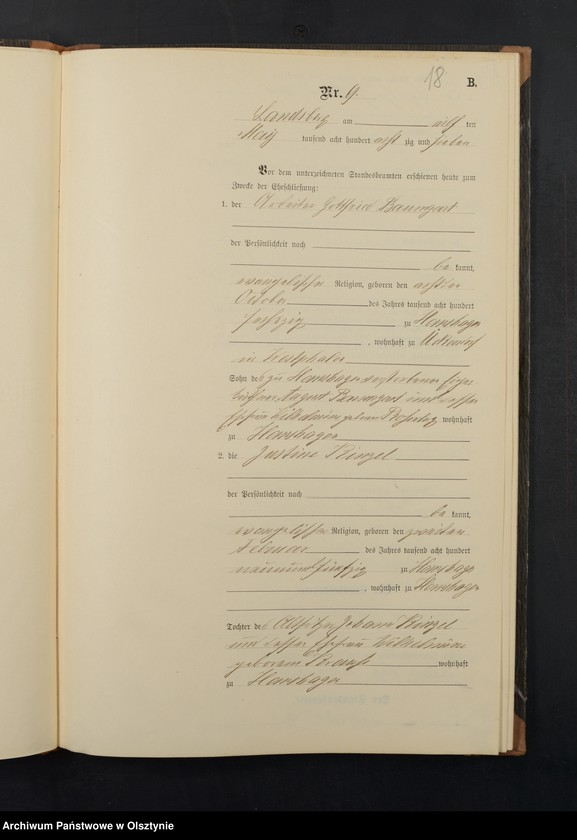 18
B.
Nr. 9.
Landsberg am elf ten
May tausend acht hundert acht zig und sieben
Vor dem unterzeichneten Standesbeamten erschienen heute zum
Zwecke der Eheschließung:
1. der Arbeiter Gottfried Baumgart
der Persönlichkeit nach
be kannt,
evangelischer Religion, geboren den achten
October des Jahres tausend acht hundert
sechzig zu Hanshagen
, wohnhaft zu
in Westphalen
Sohn des zu Hanshagen verstorbenen
August Baumgart und dessen
Ehefrau geborene wohnhaft
zu Hanshagen
2. die Justine Kinzel
der Persönlichkeit nach
be kannt,
evangelischer Religion, geboren den zweiten
Februar des Jahres tausend acht hundert
neunundfünfzig zu Hanshagen
, wohnhaft zu Hanshagen
Tochter des Altsitzer Johann Kinzel
und dessen Ehefrau Wilhelmine
geborenen wohnhaft
zu Hanshagen
Archiwum Państwowe w Olsztynie